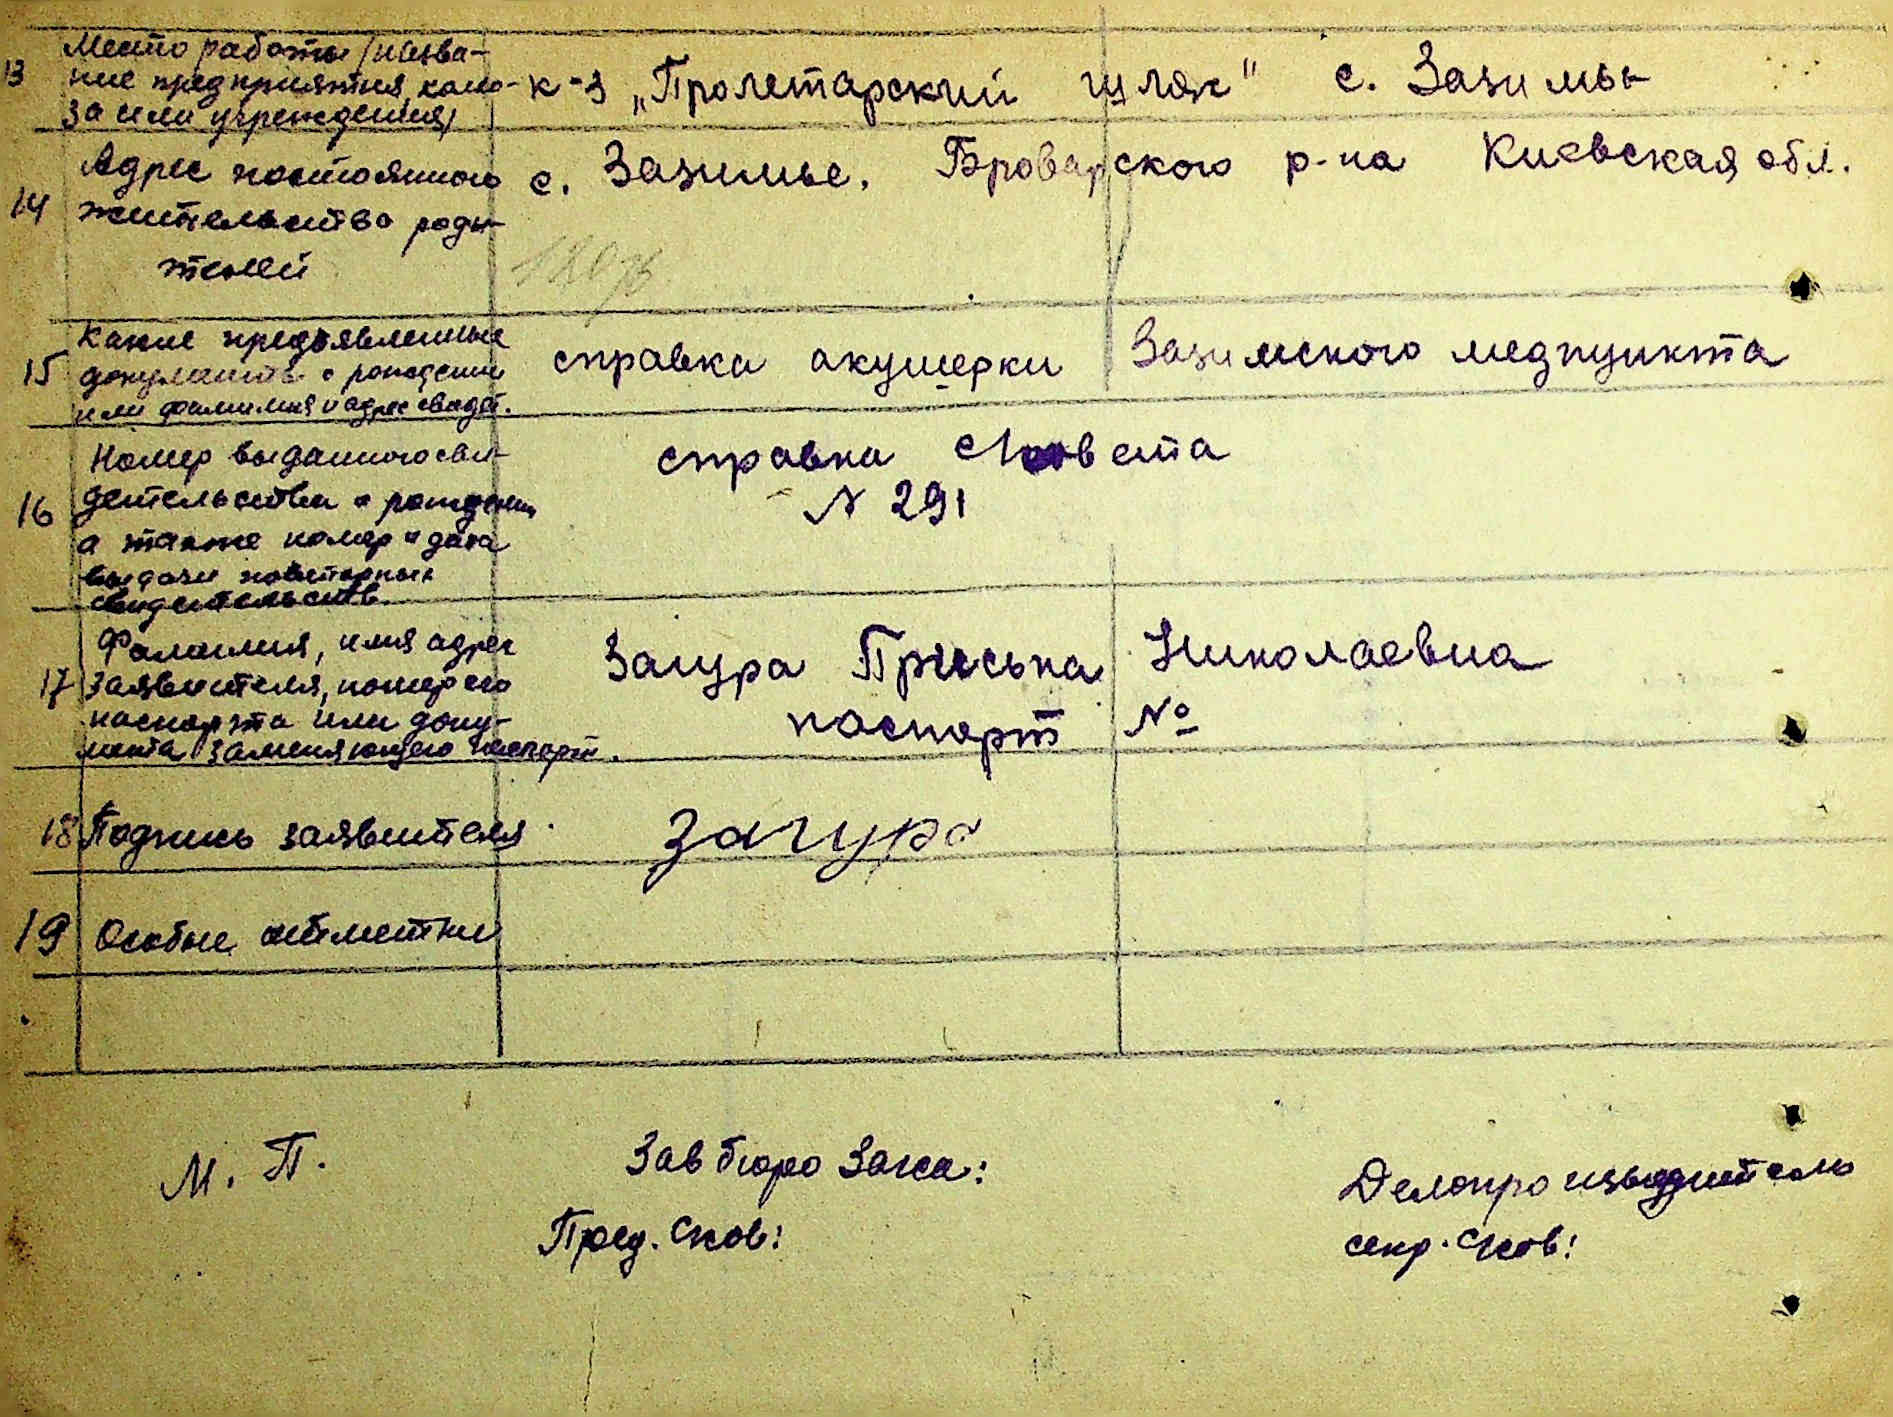 13 Место работы /назва-
ние предприятия, колхо-
за или учреждения/
к-з „Пролетарский шлях" с. Зазимье
14 Адрес постоянного
жительства роди-
телей
с. Зазимье, Броварского р-на Киевская обл.
15 Какие предъявленные
документы о рождении
или фамилия и адрес свидет.
справка акушерки Зазимского медпункта
16 Номер выданного сви-
детельства о рождении
а также номер и дата
выдачи повторных
свидетельств.
справка с/совета
N 291
17 Фамилия, имя адрес
заявителя, номер его
паспорта или доку-
мента заменяющего паспорт.
Загура Приська Николаевна
паспорт №
18 Подпись заявителя
Загура
19 Особые отметки
М. П.
Зав бюро Загса:
Делопроизводитель
Пред. с/сов:
секр. с/сов: